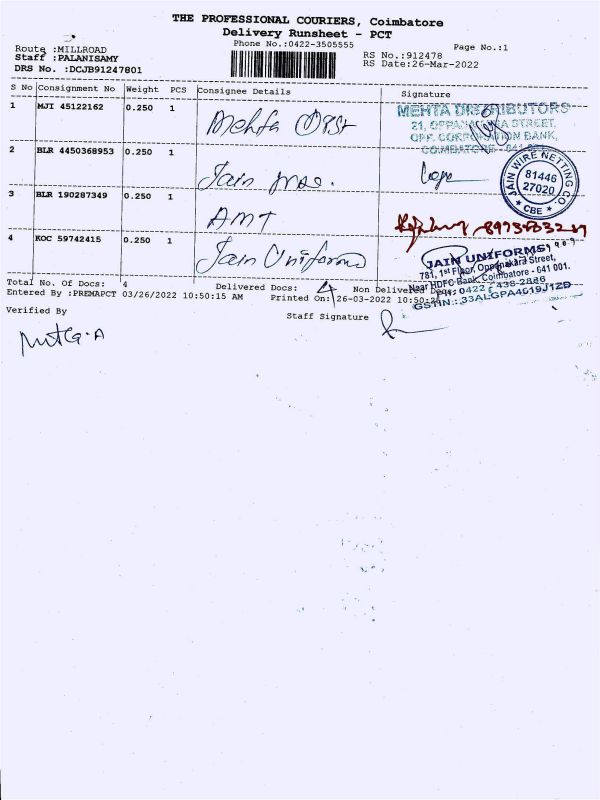 THE PROFESSIONAL COURIERS, Coimbatore
Delivery Runsheet - PCT
Phone No.:0422-3505555
Page No.:1
Route :MILLROAD
RS No.:912478
Staff :PALANISAMY
RS Date:26-Mar-2022
DRS No. :DCJB91247801
S No Consignment No Weight PCS Consignee Details Signature
1 MJI 45122162 0.250 1 Mehta Dist
MEHTA DISTRIBUTORS
21, OPPANAKARA STREET,
OPP. CORPORATION BANK,
COIMBATORE - 641 001
2 BLR 4450368953 0.250 1 Jain
JAIN WIRE NETTING CO.
81446
27020
* CBE *
3 BLR 190287349 0.250 1 AMT
4 KOC 59742415 0.250 1 Jain Uniforms
JAIN UNIFORMS
781, 1st Floor, Oppanakara Street,
Near HDFC Bank, Coimbatore - 641 001.
Ph: 0422 - 438 2886
GSTIN : 33ALGPA4619J1ZD
Total No. Of Docs: 4 Delivered Docs: 4 Non Delivered Docs:
Entered By :PREMAPCT 03/26/2022 10:50:15 AM Printed On: 26-03-2022 10:50:2
Verified By
Staff Signature